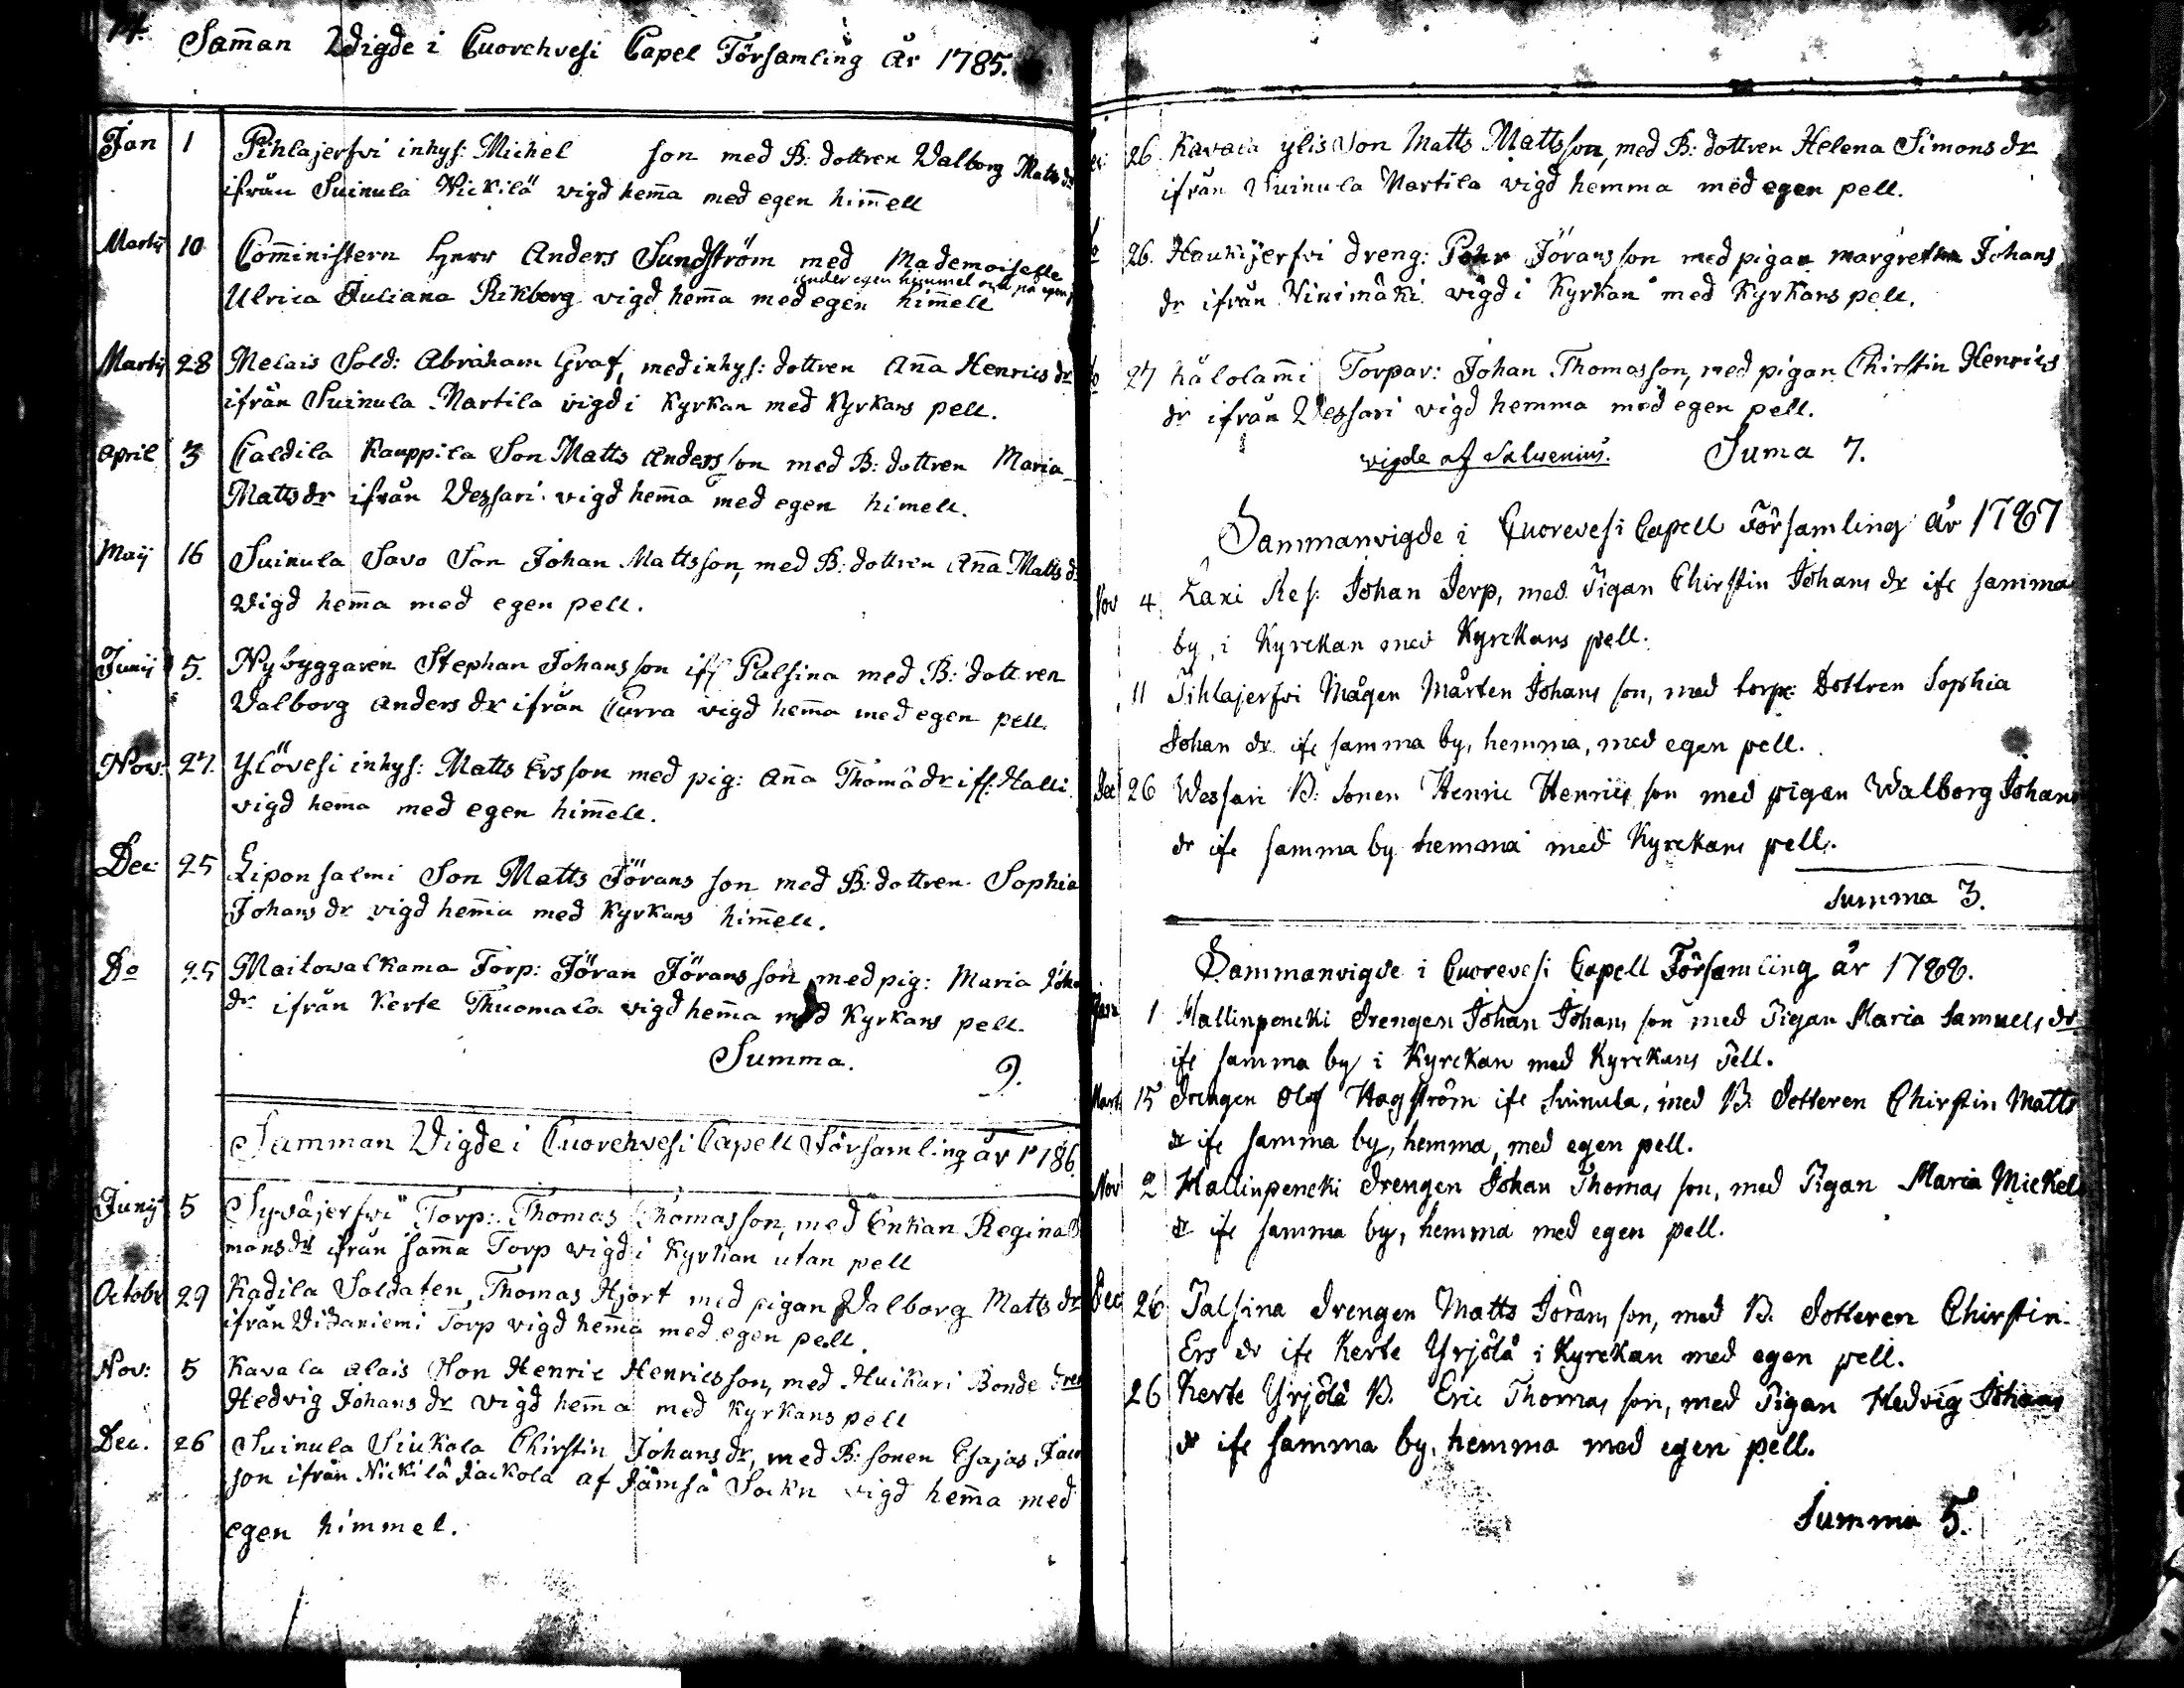 14.
Sam̄an Wigde i Cuorehvesi Capel Församling år 1785.
Jan 1 Pihlajerfvi inhys: Michel son med B: dottren Valborg Matts dr
ifrån Suinula Nickilä vigd hem̄a med egen him̄ell
Martij 10 Com̄inistern Herr Anders Sundström med Mademoiselle
under egen himmel och på egen
Ulrica Juliana Rikborg vigd hem̄a med egen him̄ell
Martij 28 Melais Sold: Abraham Graf, med inhys: dottren An̄a Henrics dr
ifrån Suinula Martila vigd i Kyrkan med Kyrkans pell.
April 3 Caldila Kauppila Son Matts Andersson med B: dottren Maria
Matts dr ifrån Vessari vigd hem̄a med egen himell.
Maij 16 Suinula Savo Son Johan Mattsson, med B: dottren An̄a Matts dr
Vigd hem̄a med egen pell.
Junij 5. Nybyggaren Stephan Johansson ifr Palsina med B: dottren
Valborg Anders dr ifrån Purra vigd hem̄a med egen pell.
Nov: 27. Ylövesi inhys: Matts Ersson med pig: An̄a Thomä dr ifr: Halli
vigd hem̄a med egen him̄ell.
Dec: 25 Liponsalmi Son Matts Jöransson med B: dottren Sophia
Johans dr vigd hem̄a med Kyrkans him̄ell.
Do 25 Maitowalkama Torp: Jöran Jöransson med pig: Maria Joha
dr ifrån Kerte Thuomala vigd hem̄a med Kyrkans pell.
Summa. 9.
Samman Vigde i Cuorehvesi Capell Församling år 1786.
Junij 5 Syväjerfvi Torp: Thomas Thomasson, med Enkan Regina
mans dr ifrån sam̄a Torp vigd i Kyrkan utan pell
Octobr 29 Kadila Soldaten Thomas Hjort med pigan Valborg Matts dr
ifrån Torp vigd hem̄a med egen pell.
Nov: 5 Kavala alais Son Henric Henricsson, med Huikari Bonde
Hedvig Johans dr vigd hem̄a med Kyrkans pell
Dec. 26 Suinula Siukola Chirstin Johans dr, med B: sonen Esajas Jac
son ifrån Nickilä Jackola af Jämsä Sokn vigd hem̄a med
egen himmel.
26. Kavala ylis Son Matts Mattsson, med B: dottren Helena Simons dr
ifrån Suinula Martila vigd hemma med egen pell.
26. Haukijerfvi dreng: Pehr Jöransson med pigan Margretha Johans
dr ifrån Vinimäki vigd i Kyrkan med Kyrkans pell.
27 hälolam̄i Torpar: Johan Thomasson, med pigan Chirstin Henrics
dr ifrån Vessari vigd hemma med egen pell.
vigde af Salvenius. Suma 7.
Sammanvigde i Cuorevesi Capell Församling år 1787
Nov 4. Laxi Res: Johan Jerp, med Pigan Chirstin Johans dr ifr samma
by, i Kyrckan med Kyrckans pell.
11 Pihlajerfvi Mågen Mårten Johansson, med torp: Dottren Sophia
Johan dr ifr samma by, hemma, med egen pell.
Dec 26 Wessari B: Sonen Henric Henricsson med pigan Walborg Johans
dr ifr samma by hemma med Kyrckans pell.
Summa 3.
Sammanvigde i Cuorevesi Capell Församling år 1788.
Janu 1 Hallinpencki drengen Johan Johansson med Pigan Maria Samuels dr
ifr samma by i Kyrckan med Kyrckans Pell.
Mart 15 Drengen Olof Hagström ifr Svinula, med B. Dotteren Chirstin Matts
dr ifr samma by, hemma, med egen pell.
Nov 2 Hallinpencki drengen Johan Thomasson, med Pigan Maria Mickels
dr ifr samma by, hemma med egen pell.
Dec 26 Palsina drengen Matts Joransson, med B. Dotteren Chirstin
Ers dr ifr Kerte Yrjölä i Kyrckan med egen pell.
26 Kerte Yrjölä B. Eric Thomasson, med Pigan Hedvig Johans
dr ifr samma by, hemma med egen pell.
Summa 5.